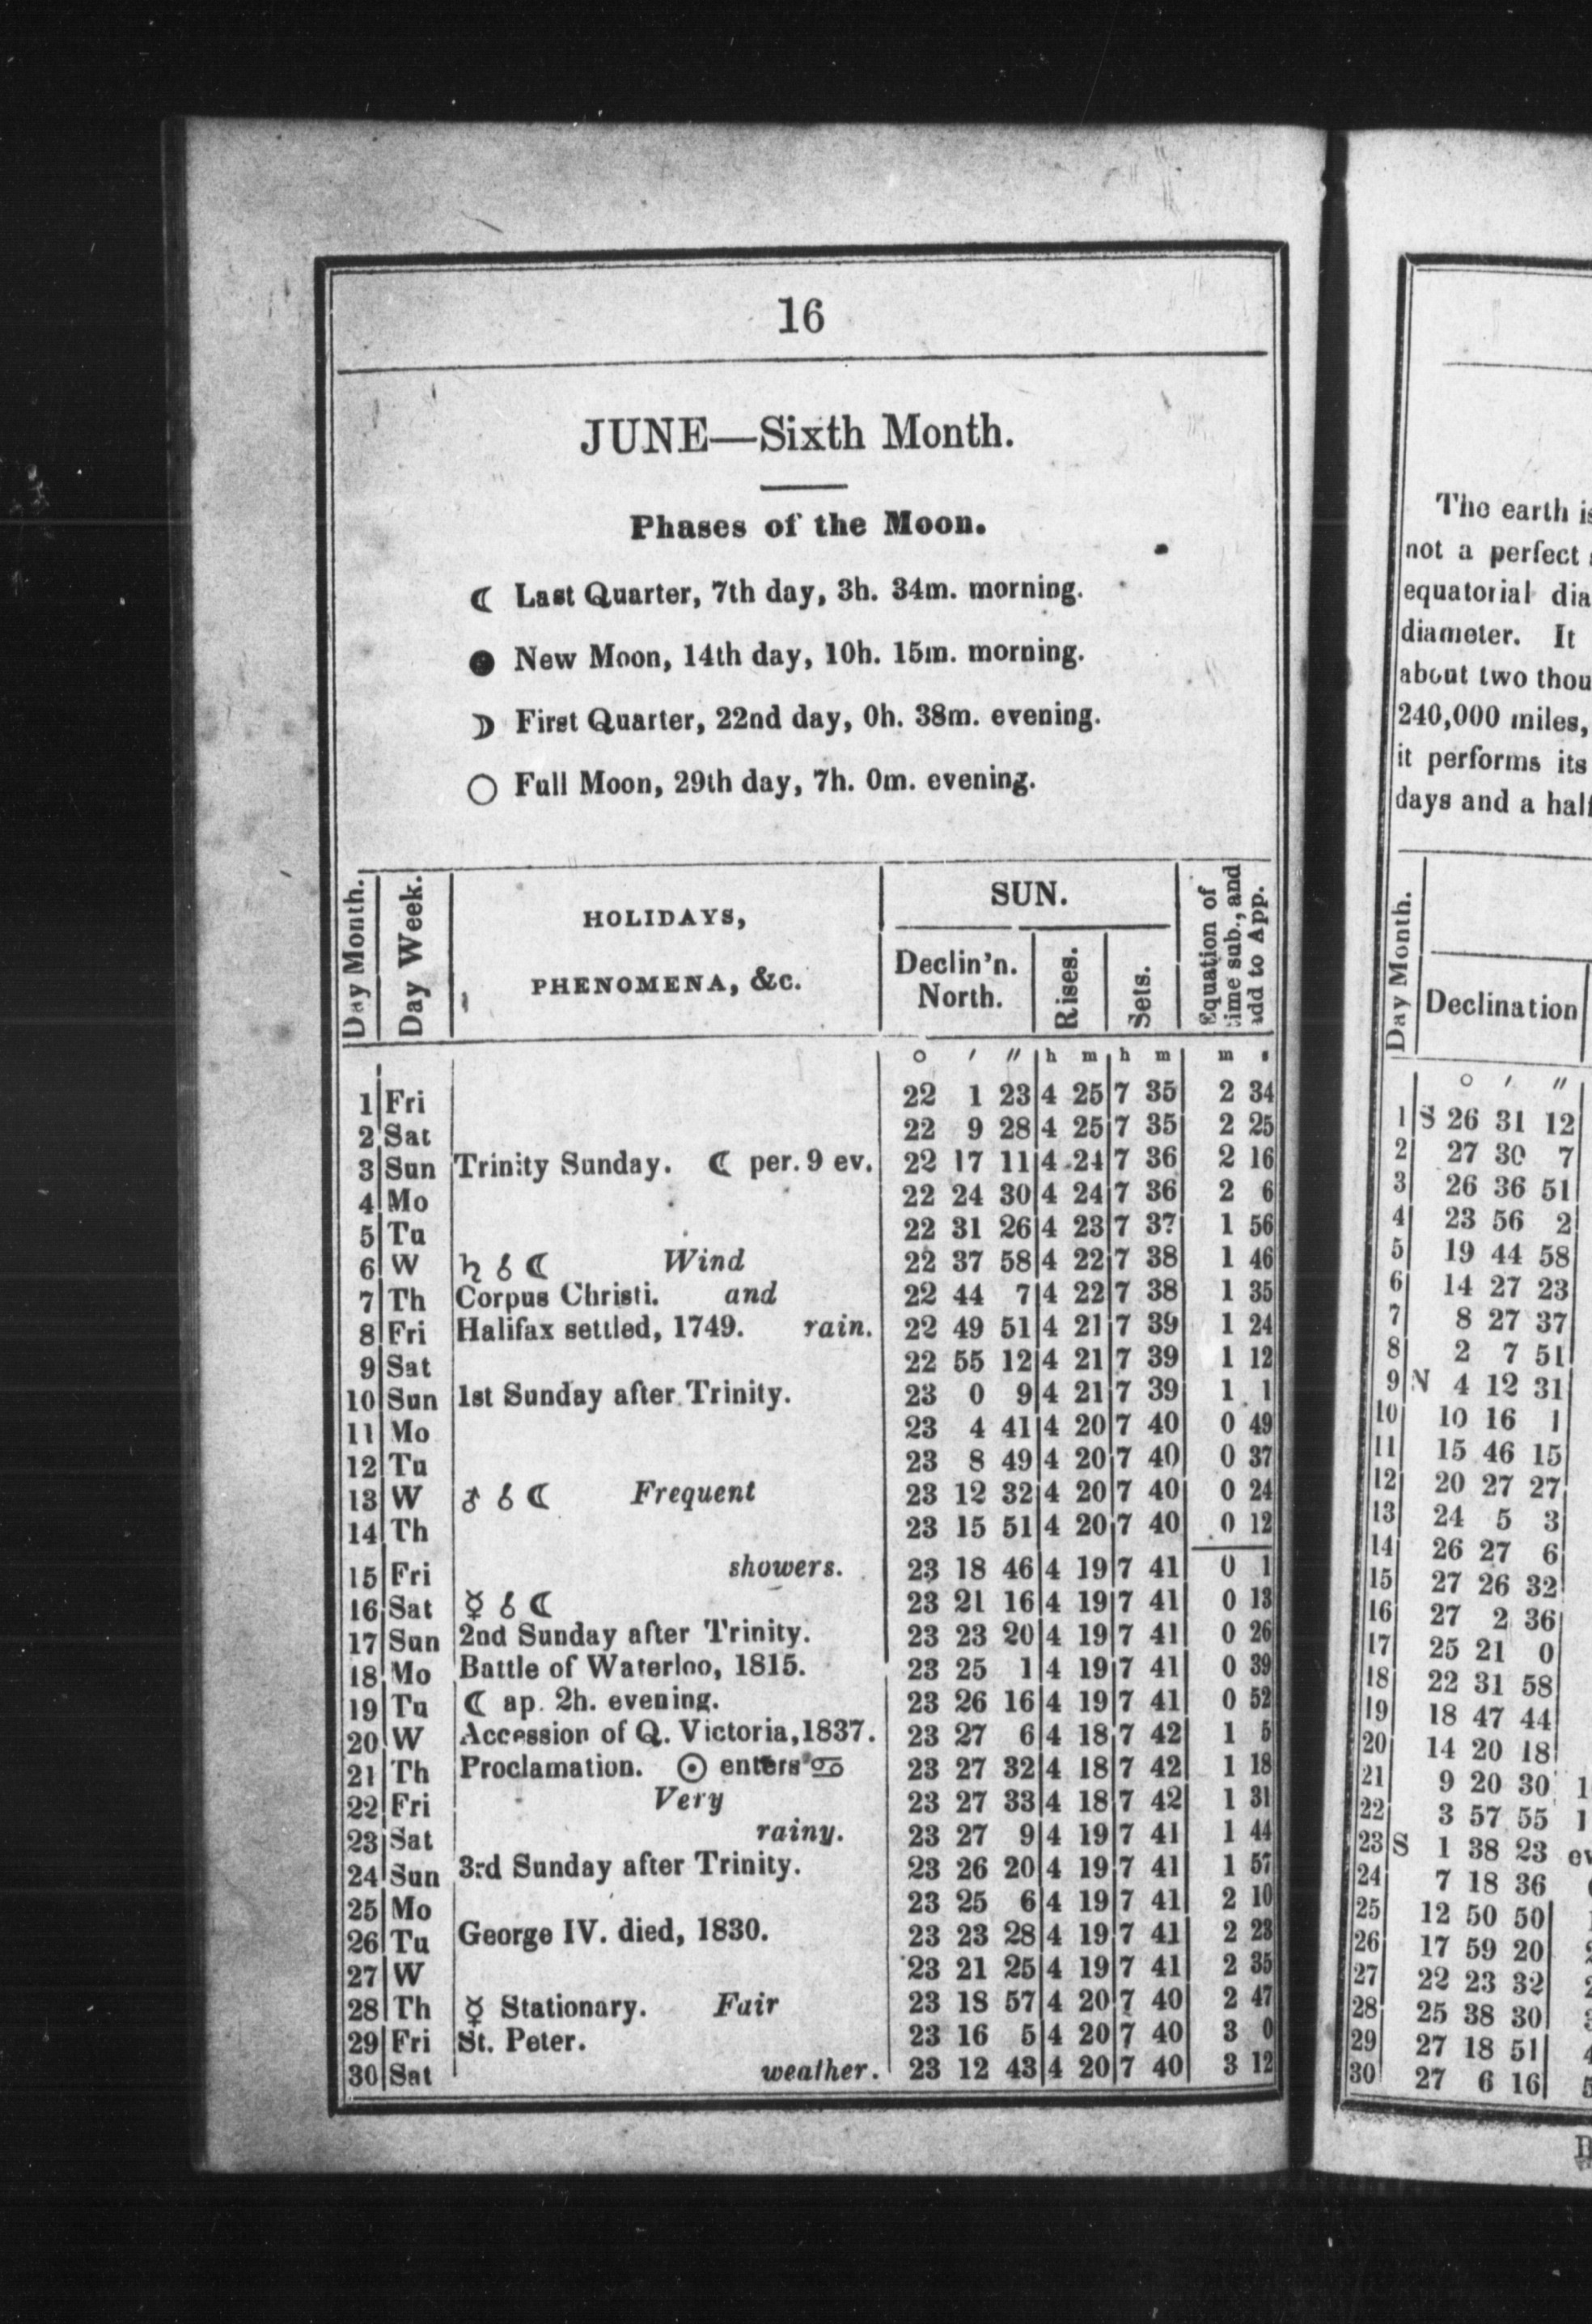 16
JUNE—Sixth Month.
Phases of the Moon.
☾ Last Quarter, 7th day, 3h. 34m. morning.
● New Moon, 14th day, 10h. 15m. morning.
☽ First Quarter, 22nd day, 0h. 38m. evening.
○ Full Moon, 29th day, 7h. 0m. evening.
Day Month. Day Week. HOLIDAYS, PHENOMENA, &c. SUN. Declin'n. North. Rises. Sets. Equation of time sub., and add to App.
○ ′ ″ h m h m m s
1 Fri 22 1 23 4 25 7 35 2 34
2 Sat 22 9 28 4 25 7 35 2 25
3 Sun Trinity Sunday. ☾ per. 9 ev. 22 17 11 4 24 7 36 2 16
4 Mo 22 24 30 4 24 7 36 2 6
5 Tu 22 31 26 4 23 7 37 1 56
6 W ♄ ☌ ☾ Wind 22 37 58 4 22 7 38 1 46
7 Th Corpus Christi. and 22 44 7 4 22 7 38 1 35
8 Fri Halifax settled, 1749. rain. 22 49 51 4 21 7 39 1 24
9 Sat 22 55 12 4 21 7 39 1 12
10 Sun 1st Sunday after Trinity. 23 0 9 4 21 7 39 1 1
11 Mo 23 4 41 4 20 7 40 0 49
12 Tu 23 8 49 4 20 7 40 0 37
13 W ♂ ☌ ☾ Frequent 23 12 32 4 20 7 40 0 24
14 Th 23 15 51 4 20 7 40 0 12
15 Fri showers. 23 18 46 4 19 7 41 0 1
16 Sat ☿ ☌ ☾ 23 21 16 4 19 7 41 0 13
17 Sun 2nd Sunday after Trinity. 23 23 20 4 19 7 41 0 26
18 Mo Battle of Waterloo, 1815. 23 25 1 4 19 7 41 0 39
19 Tu ☾ ap. 2h. evening. 23 26 16 4 19 7 41 0 52
20 W Accession of Q. Victoria, 1837. 23 27 6 4 18 7 42 1 5
21 Th Proclamation. ☉ enters ♋ 23 27 32 4 18 7 42 1 18
22 Fri Very 23 27 33 4 18 7 42 1 31
23 Sat rainy. 23 27 9 4 19 7 41 1 44
24 Sun 3rd Sunday after Trinity. 23 26 20 4 19 7 41 1 57
25 Mo 23 25 6 4 19 7 41 2 10
26 Tu George IV. died, 1830. 23 23 28 4 19 7 41 2 23
27 W 23 21 25 4 19 7 41 2 35
28 Th ☿ Stationary. Fair 23 18 57 4 20 7 40 2 47
29 Fri St. Peter. 23 16 5 4 20 7 40 3 0
30 Sat weather. 23 12 43 4 20 7 40 3 12
The earth
not a perfect
equatorial
diameter. It
about two
240,000 miles,
it performs its
days and a
Day Month. Declination
○ ′ ″
1 S 26 31 12
2 27 30 7
3 26 36 51
4 23 56 2
5 19 44 58
6 14 27 23
7 8 27 37
8 2 7 51
9 N 4 12 31
10 10 16 1
11 15 46 15
12 20 27 27
13 24 5 3
14 26 27 6
15 27 26 32
16 27 2 36
17 25 21 0
18 22 31 58
19 18 47 44
20 14 20 18
21 9 20 30
22 3 57 55
23 S 1 38 23
24 7 18 36
25 12 50 50
26 17 59 20
27 22 23 32
28 25 38 30
29 27 18 51
30 27 6 16